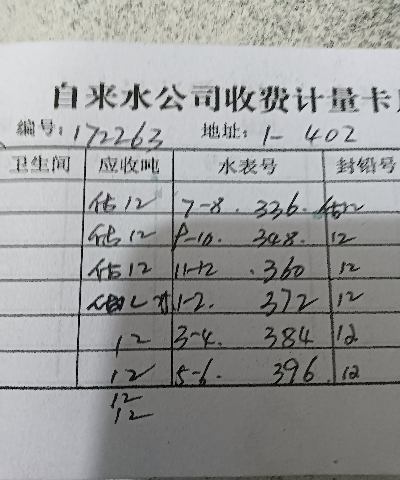 自来水公司收费计量卡
编号: 172263 地址: 1- 402
卫生间 应收吨 水表号 封铅号
估12 7-8. 336. 估12
估12 9-10. 348. 12
估12 11-12 .360 12
1-2. 372 12
12 3-4. 384 12
12 5-6. 396. 12
12
12